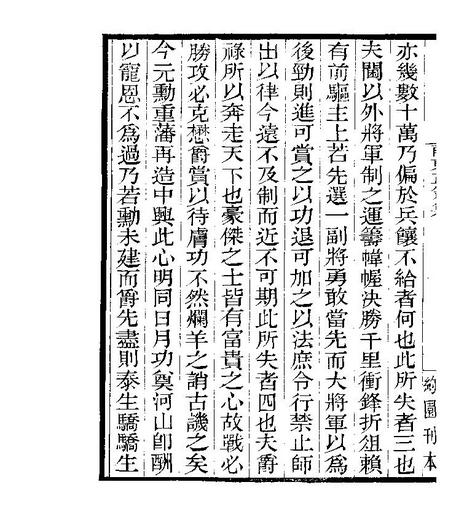 亦幾數十萬乃偏於兵饟不給者何也此所失者三也
夫閫以外將軍制之運籌幃幄決勝千里衝鋒折俎賴
有前驅主上若先選一副將勇敢當先而大將軍以為
後勁則進可賞之以功退可加之以法庶令行禁止師
出以律今遠不及制而近不可期此所失者四也夫爵
祿所以奔走天下也豪傑之士皆有富貴之心故戰必
勝攻必克懋爵賞以待膚功不然爛羊之誚古譏之矣
今元勳重藩再造中興此心明同日月功奠河山卽酬
以寵恩不為過乃若勳未建而爵先盡則泰生驕驕生
約園刊本